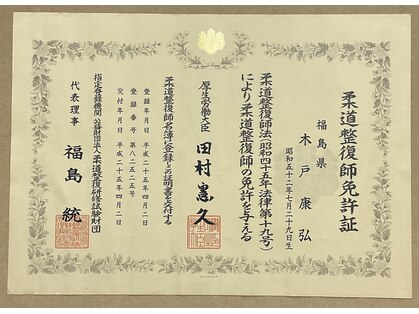 柔道整復師免許証
福島県
木戸康弘
昭和五十二年七月二十九日生
柔道整復師法(昭和四十五年法律第十九号)
により柔道整復師の免許を与える
厚生労働大臣 田村憲久
柔道整復師名簿に登録しこの証明書を交付する
登録年月日 平成二十五年四月二日
登録番号 第八二五二五号
交付年月日 平成二十五年四月二日
指定登録機関 公益財団法人柔道整復研修試験財団
代表理事 福島統